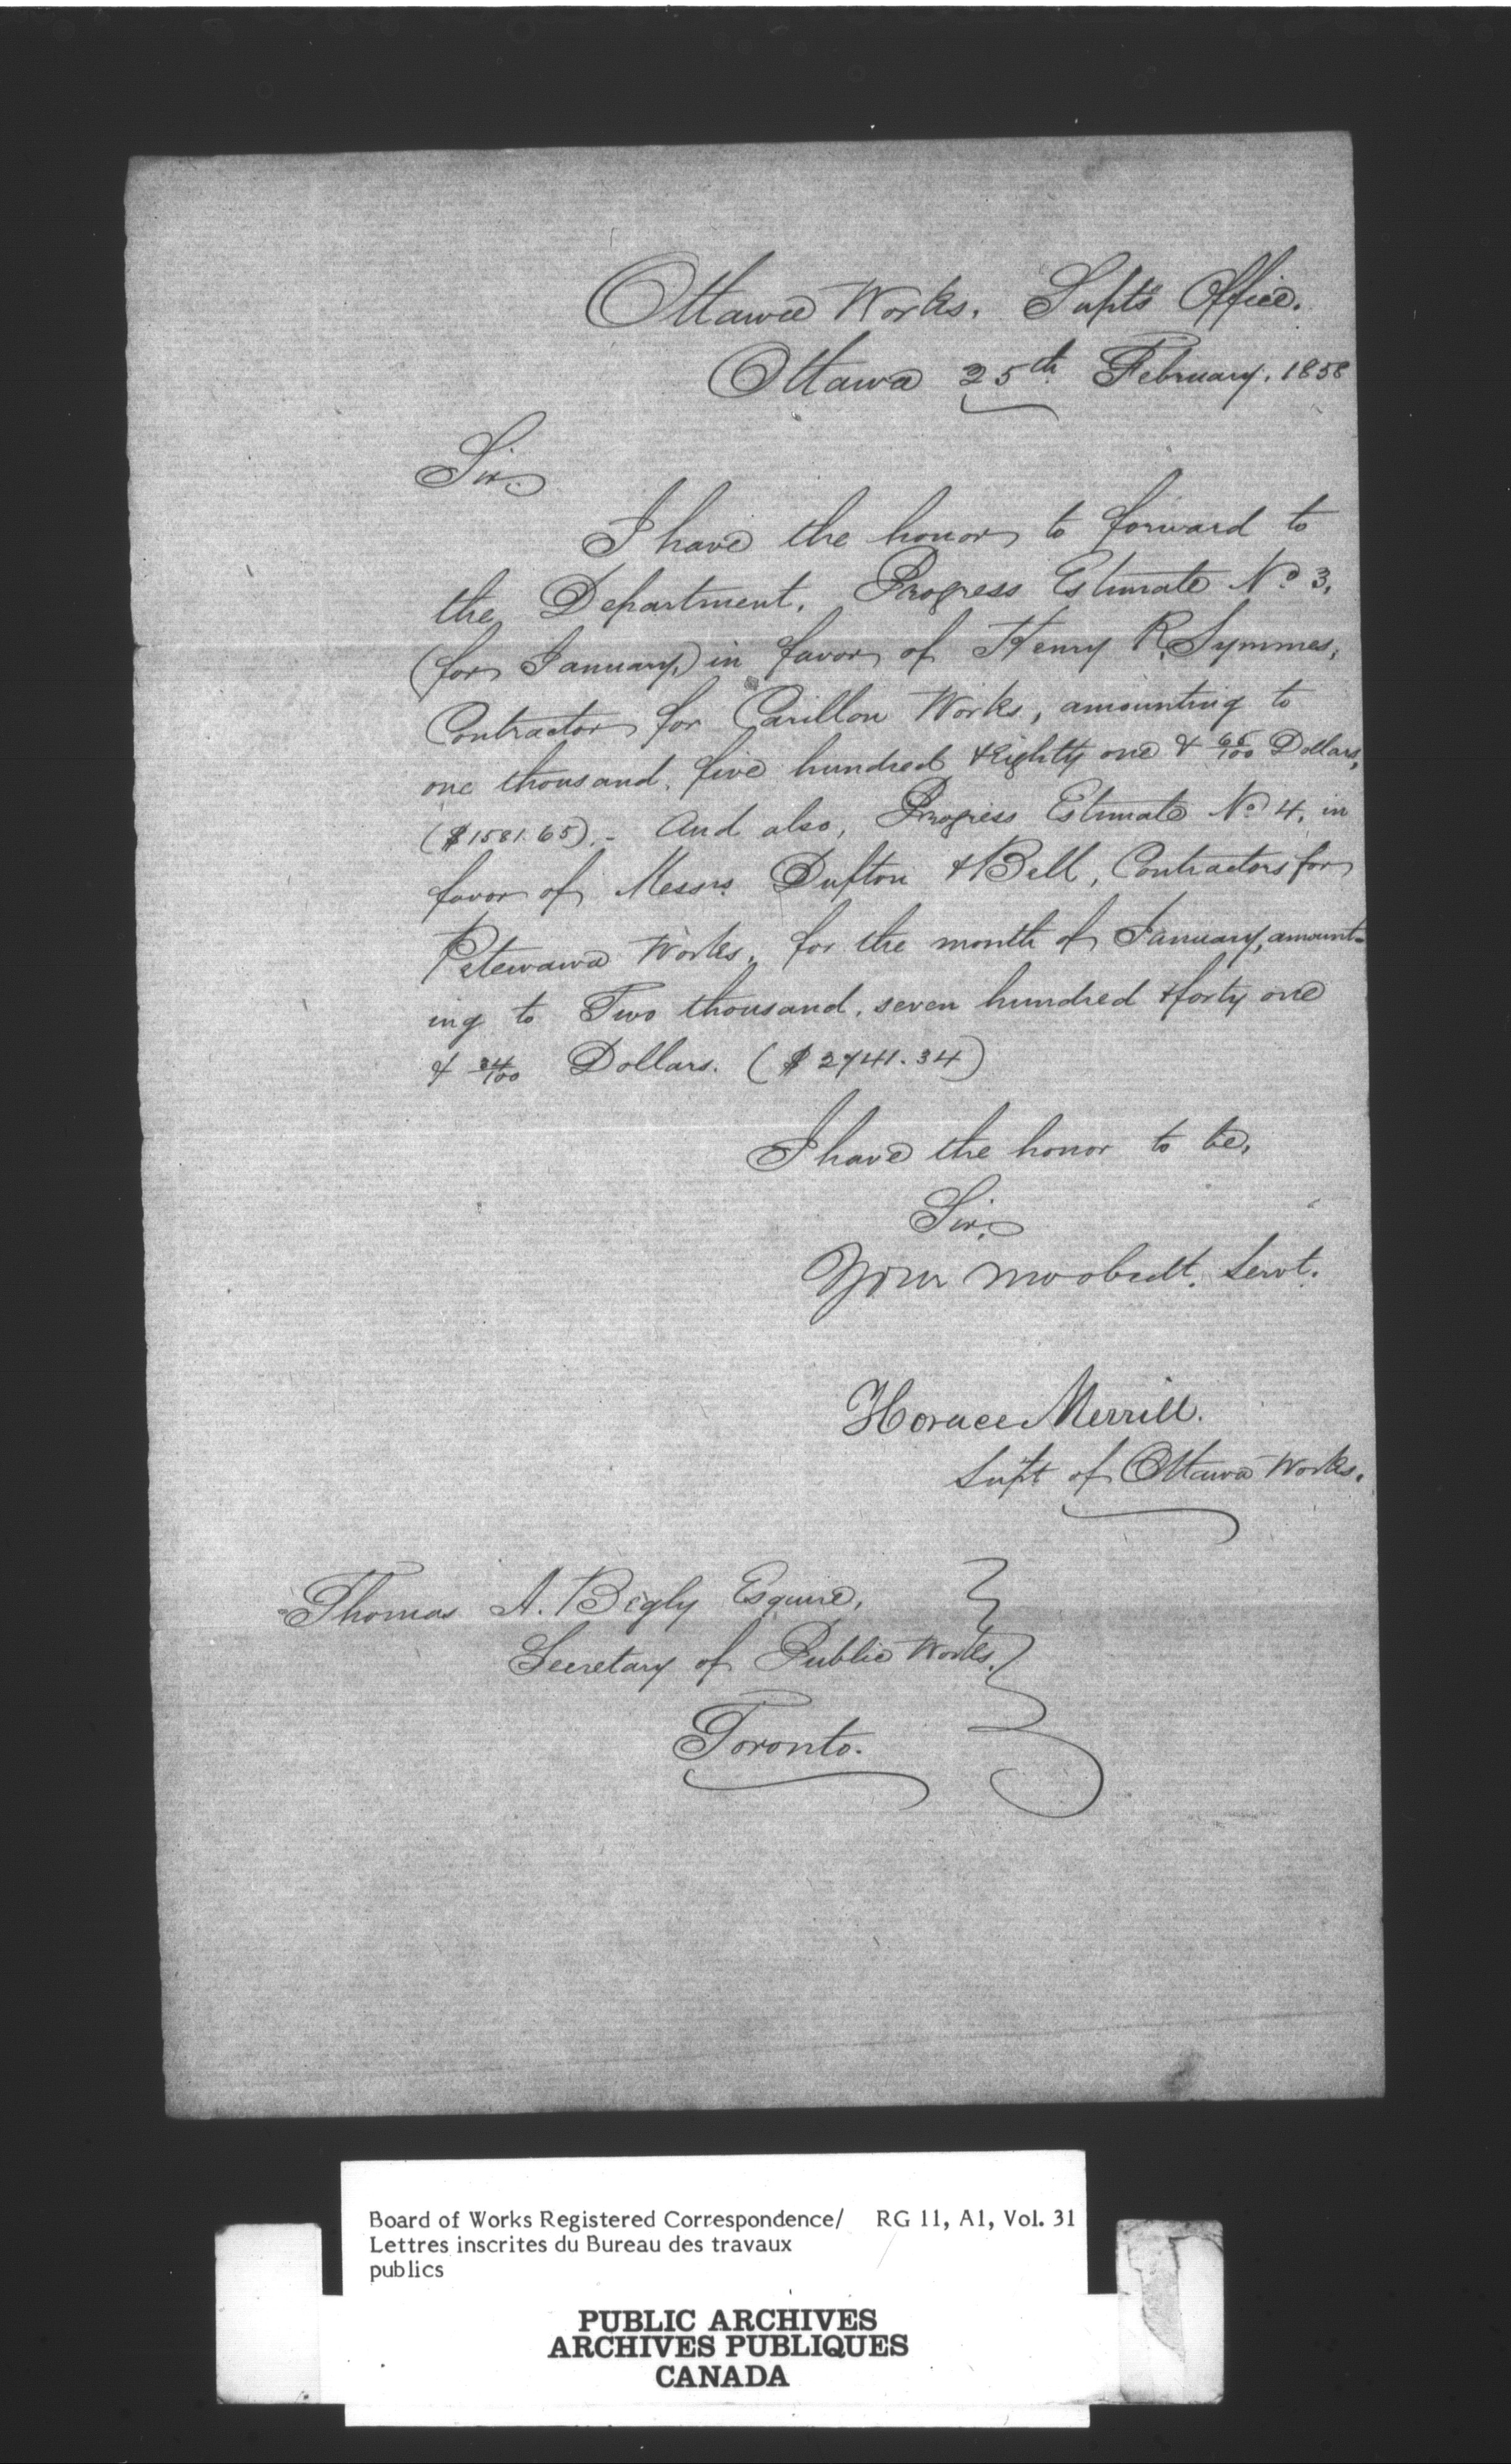 Ottawa Works. Supts Office.
Ottawa 25th February. 1858
Sir.
I have the honor to forward to
the Department. Progress Estimate No 3,
(for January,) in favor of Henry R. Symmes,
Contractor for Carillon Works, amounting to
one thousand, five hundred & Eighty one & 65/100 Dollars,
($1581.65).- And also, Progress Estimate No 4, in
favor of Messrs. Dufton & Bell, Contractors for
Petewawa Works, for the month of January, amount-
ing to Two thousand, seven hundred & forty one
& 34/100 Dollars. ($2741.34)
I have the honor to be,
Sir,
Your mo obedt. Servt.
Horace Merrill.
Supt of Ottawa Works.
Thomas A. Bigly Esquire,
Secretary of Public Works.
Toronto.
Board of Works Registered Correspondence/ RG 11, A1, Vol. 31
Lettres inscrites du Bureau des travaux
publics
PUBLIC ARCHIVES
ARCHIVES PUBLIQUES
CANADA